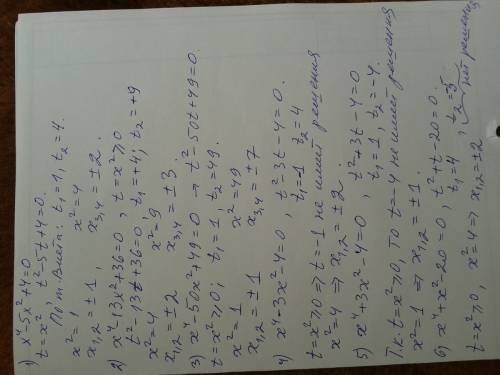 1) x⁴-5x²+4=0
t=x², t²-5t+4=0.
По т. Виета: t₁=1, t₂=4.
x²=1 x²=4
x₁,₂=±1, x₃,₄=±2.
2) x⁴-13x²+36=0, t=x²≥0
t²-13t+36=0, t₁=+4; t₂=+9
x²=4 x²=9
x₁,₂=±2 x₃,₄=±3.
3) x⁴-50x²+49=0 → t²-50t+49=0.
t=x²≥0; t₁=1, t₂=49.
x²=1 x²=49
x₁,₂=±1 x₃,₄=±7
4) x⁴-3x²-4=0, t²-3t-4=0.
t₁=-1 t₂=4
t=x²≥0 ⇒ t=-1 не имеет решения
x²=4 ⇒ x₁,₂=±2
5) x⁴+3x²-4=0, t²+3t-4=0
t₁=1, t₂=-4.
Т.к. t=x²≥0, то t=-4 не имеет решения
x²=1 ⇒ x₁,₂=±1.
6) x⁴+x²-20=0, t²+t-20=0.
t₁=4 t₂=-5
t=x²≥0, x²=4 ⇒ x₁,₂=±2, нет решения